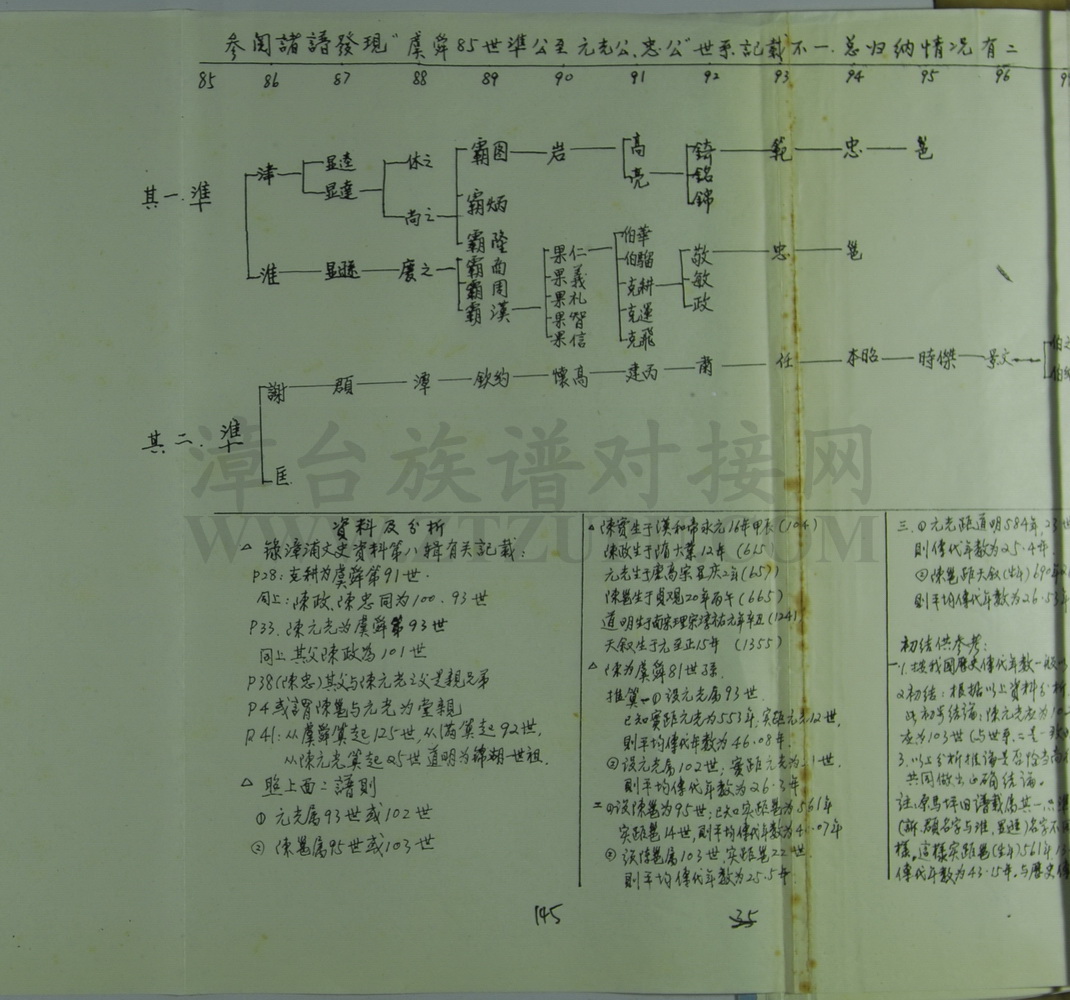 参阅諸譜發現"虞舜85世準公至元光公、忠公"世系記載不一.总归纳情况有二
85 86 87 88 89 90 91 92 93 94 95 96
其一.準
津 显逵 休之 霸图 岩 高 錡 範 忠 邕
显達 亮 銘
尚之 霸炳 錦
霸隆
淮 显遯 慶之 霸而 果仁 伯華 敬 忠 邕
霸周 果義 伯騮 敏
霸漢 果礼 克耕 政
果智 克運
果信 克飛
其二.準
謝 頵 潭 欽約 懷高 建丙 蘭 任 本昭 時傑 景文
匡
漳台族谱对接网
資料及分析
△ 錄漳浦文史資料第八輯有关記載:
P28:克耕为虞舜第91世.
同上:陳政.陳忠同为100.93世
P33.陳元光为虞舜第93世
同上其父陳政為101世
P38(陳忠)其父与陳元光之父是親兄弟
P4或謂陳邕与元光为堂親
P41:从虞舜算起125世,从滿算起92世.
从陳元光算起25世道明为錦湖一世祖.
△ 照上面二譜則
① 元光属93世或102世
② 陳邕属95世或103世
△ 陳寔生于漢和帝永元16年甲辰(104)
陳政生于隋大業12年(61
元光生于唐高宗显庆2年(657)
陳邕生于貞观20年丙午(665)
道明生于南宋理宗淳祐元年辛丑(1241)
天叙生于元至正15年 (1355)
△ 陳为虞舜81世孫
推算一①設元光属93世.
已知寔距元光为553年,实距元光12世,
則平均傳代年数为46.08年.
②设元光属102世;寔距元光为21世.
則平均傳代年数为26.3年
二①设陳邕为95世;已知实距邕为561年
实距邕14世,則平均傳代年数为4.07年
②设陳邕属103世.实距邕22世.
則平均傳代年数为25.5年.
三.①元光距道明584年,23世
則傳代年数为25.4年.
②陳邕距天叙(生年)690年
則平均傳代年数为26.5
初结供参考:
一1.按我国歷史傳代年数一般
2初结:根据以上資料分析
此初步结論:陳元光应为10
应为103世(与世系二是一致
3.以上分析推論是否恰当尚
共同做出正确结論。
註:原馬坪旧譜載属其一.
樣,這樣实距邕(生年)561年
傳代年数为43.15年.与歷史
145
35